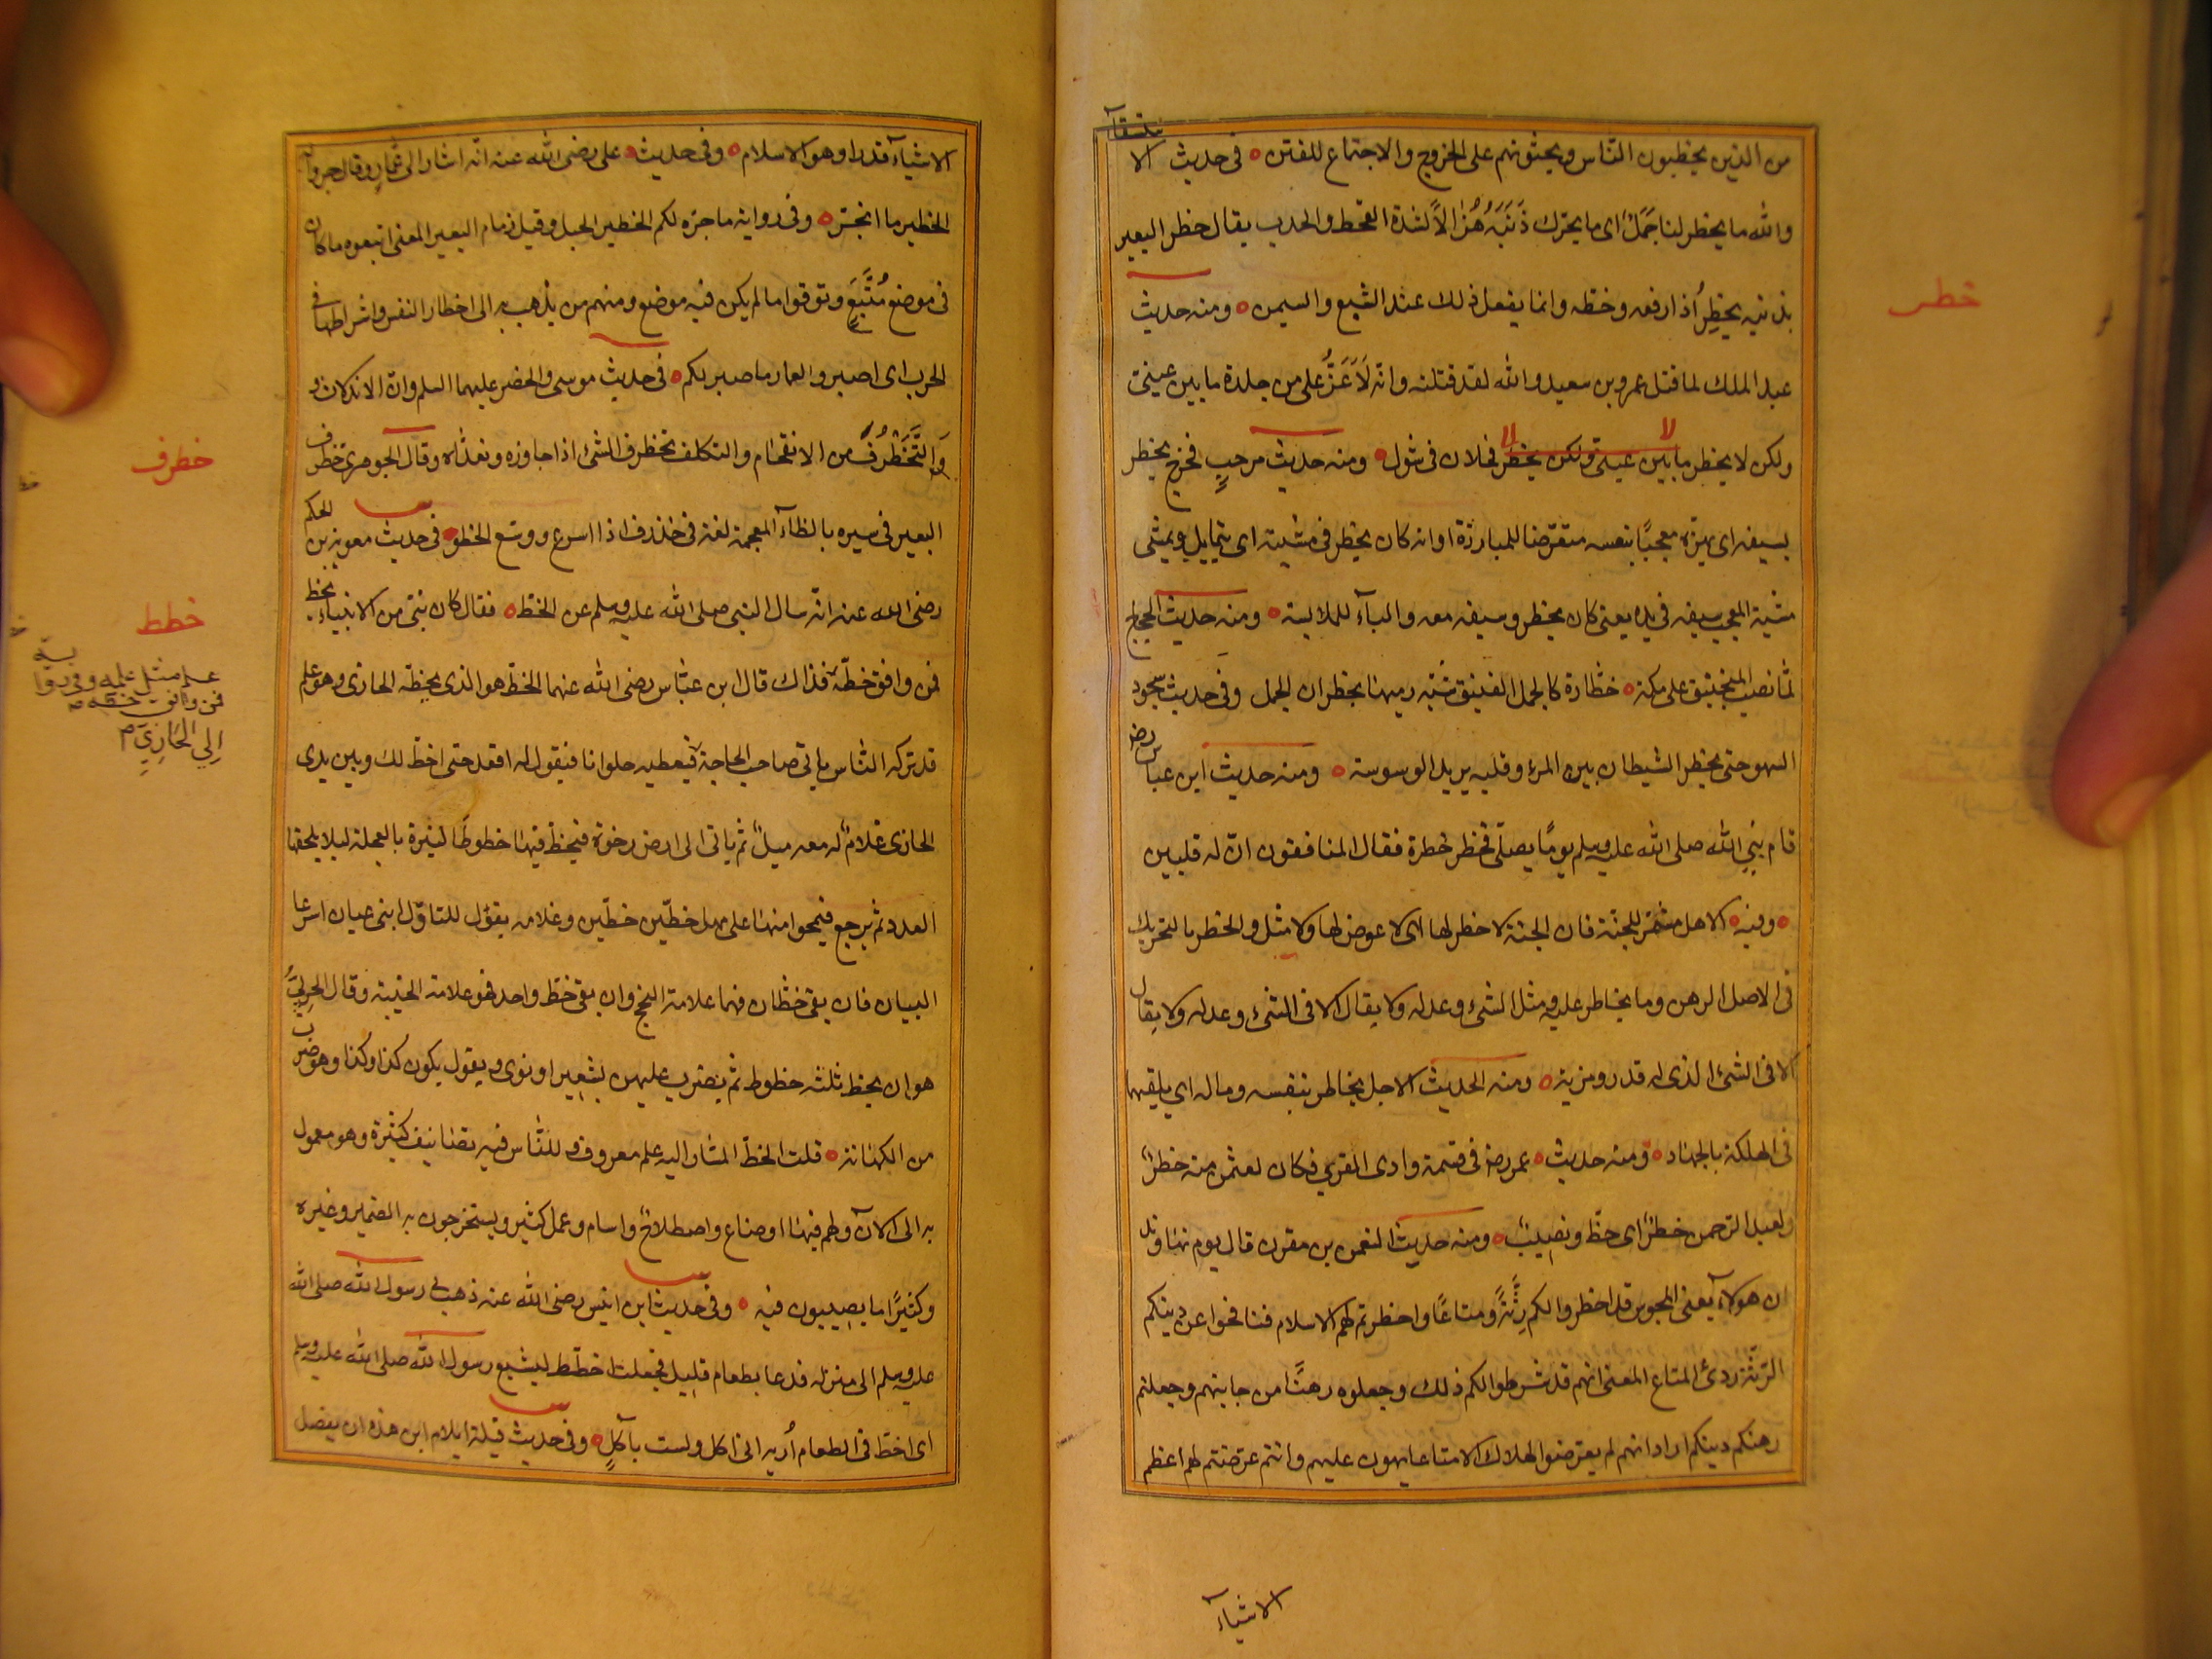 من الذين يخطبون الناس ويحثونهم على الخروج والاجتماع للفتن ه فى حديث الاستسقآء
والله ما يخطر لنا جمل اى ما يحرك ذنبه هزالا لشدة القحط والجدب يقال خطر البعير
خطر
بذنبه يخطر اذا رفعه وحطه وانما يفعل ذلك عند الشبع والسمن ه ومنه حديث
عبد الملك لما قتل عمرو بن سعيد والله لقد قتلته وانه لاعز على من جلدة ما بين عينى
ولكن لا يخطر ما بين عينى ولكن يخطر فحلان فى شول ه ومنه حديث مرحب فخرج يخطر
بسيفه اى يهزه معجبا بنفسه متعرضا للمبارزة او انه كان يخطر فى مشيته اى يتمايل ويمشى
مشية المعجب وسيفه فى يده يعنى كان يخطر وسيفه معه والبآء للملابسة ه ومنه حديث الحجاج
لما نصب المنجنيق على مكة ه خطارة كالجمل الفنيق شبه رميها بخطران الجمل وفى حديث سجود
السهو حتى يخطر الشيطان بين المرء وقلبه يريد الوسوسة ه ومنه حديث ابن عباس رض
قام نبى الله صلى الله عليه وسلم يوما يصلى فخطر خطرة فقال المنافقون ان له قلبين
ه وفيه ه الا هل مشمر للجنة فان الجنة لا خطر لها اى لا عوض لها ولا مثل والخطر بالتحريك
فى الاصل الرهن وما يخاطر عليه ومثل الشئ وعدله ولا يقال الا فى الشئ وعدله ولا يقال
الا فى الشئ الذى له قدر ومزية ه ومنه الحديث الا رجل يخاطر بنفسه وماله اى يلقيها
فى الهلكة بالجهاد ه ومنه حديث ه عمر رض فى قسمة وادى القرى فكان لعثمن منه خطر
ولعبد الرحمن خطر اى حظ ونصيب ه ومنه حديث النعمن بن مقرن قال يوم نهاوند
ان هولآء يعنى المجوس قد اخطروا لكم رثة ومتاعا واخطرتم لهم الاسلام فنافحوا عن دينكم
الرثة ردئ المتاع المعنى انهم قد شرطوا لكم ذلك وجعلوه رهنا من جانبهم وجعلتم
رهنكم دينكم اراد انهم لم يعرضوا للهلاك الا متاعا يهون عليهم وانتم عرضتم لهم اعظم
الاشيآء
الاشيآء قدرا وهو الاسلام ه وفى حديث ه على رضى الله عنه انه اشار الى عمار وقال جروا له
الخطير ما انجر ه وفى رواية ما جره لكم الخطير الحبل وقيل زمام البعير المعنى اتبعوه ما كان
فى موضع متبع وتوقوا ما لم يكن فيه موضع ومنهم من يذهب به الى اخطار النفس واشراطها فى
الحرب اى اصبروا لعمار ما صبر لكم ه فى حديث موسى والخضر عليهما السلم وان الاندلاث و
خطرف
والتخطرف من الانقحام والتكلف تخطرف الشئ اذا جاوزه وتعداه وقال الجوهرى خطرف
البعير فى سيره بالظآء المعجمة لغة فى خذرف اذا اسرع ووسع الخطو ه فى حديث معوية بن الحكم
خطط
رضى الله عنه انه سال النبى صلى الله عليه وسلم عن الخط ه فقال كان نبى من الانبياء يخط
فمن وافق خطه فذاك قال ابن عباس رضى الله عنهما الخط هو الذى يخطه الحازى وهو علم
علم مثل علمه وفى رواية
فمن وافق خطه
الى الحازى م
قد تركه الناس ياتى صاحب الحاجة فيعطيه حلوانا فيقول له اقعد حتى اخط لك وبين يدى
الحازى غلام له معه ميل ثم ياتى الى ارض رخوة فيخط فيها خطوطا كثيرة بالعجلة ليلا يلحقها
العدد ثم يرجع فيمحوا منها على مهل خطين خطين وغلامه يقول للتاول ابنى عيان اسرعا
البيان فان بقى خطان فهما علامة النجح وان بقى خط واحد فهو علامة الخيبة وقال الحربى
هو ان يخط ثلثه خطوط ثم يضرب عليهن بشعير او نوى ويقول يكون كذا وكذا وهو ضرب
من الكهانة ه قلت الخط المشار اليه علم معروف وللناس فيه تصانيف كثيرة وهو معمول
به الى الآن ولهم فيها اوضاع واصطلاح واسام وعمل كثير ويستخرجون به الضمير وغيره
وكثيرا ما يصيبون فيه ه وفى حديث ابن انيس رضى الله عنه ذهب بى رسول الله صلى الله
عليه وسلم الى منزله فدعا بطعام قليل فجعلت اخطط ليشبع رسول الله صلى الله عليه وسلم
اى اخط فى الطعام اريه انى اكل ولست بآكل ه وفى حديث قيلة ايلام ابن هذه ان يفصل